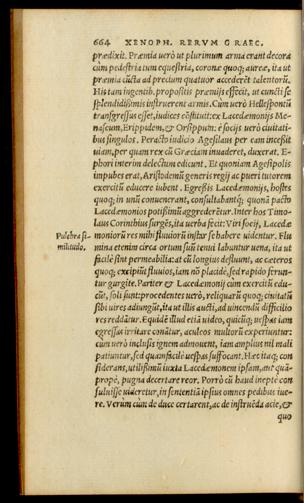 664 XENOPH. RERUM GRAEC.
prædixit. Præmia uerò ut plurimum arma erant decora
cùm pedestria tum equestria, coronæ quoq; aureæ, ita ut
præmia cũcta ad precium quatuor accederẽt talentorũ.
His tam ingentib. propositis præmijs effecit, ut cuncti se
splendidißimis instruerent armis. Cùm uerò Hellespontũ
transgressus esset, iudices cõstituit: ex Lacedæmonijs Me-
nascum, Erippidem, & Orsippum: è socijs uerò ciuitati-
bus singulos. Peracto iudicio Agesilaus per eam incessit
uiam, per quam rex cũ Græciam inuaderet, duxerat. E-
phori interim delectum edicunt. Et quoniam Agesipolis
impubes erat, Aristodemũ generis regij ac pueri tutorem
exercitũ educere iubent. Egreßis Lacedæmonijs, hostes
quoq; in unũ conuenerant, consultabantq; quonã pacto
Lacedæmonios potißimũ aggrederẽtur. Inter hos Timo-
laus Corinthius surgẽs, ita uerba fecit: Viri socij, Lacedæ
Pulchra si- moniorũ res mihi fluuiorũ instar se habere uidentur. Flu
militudo. mina etenim circa ortum suũ tenui labuntur uena, ita ut
facilè sint permeabilia: at cũ longius defluunt, ac cæteros
quoq; excipiũt fluuios, iam nõ placidè, sed rapido ferun-
tur gurgite. Pariter & Lacedæmonij cùm exercitũ edu-
cũt, soli sunt: procedentes uerò, reliquarũ quoq; ciuitatũ
sibi uires adiungũt, ita ut illis aucti, ad uincendũ difficilio
res reddãtur. Equidẽ illud etiã uideo, quicũq; uespas iam
egressas irritare conãtur, aculeos multorũ experiuntur:
cùm uerò inclusis ignem admouent, iam amplius nil mali
patiuntur, sed quàm facilè uespas suffocant. Hæc itaq; con
siderans, utilißimũ iuxta Lacedæmonem ipsam, aut quã-
propè, pugna decertare reor. Porrò cũ haud ineptè con
suluisse uideretur, in sententiã ipsius omnes pedibus iue-
re. Verùm cùm de duce certarent, ac de instruẽda acie, &
quo